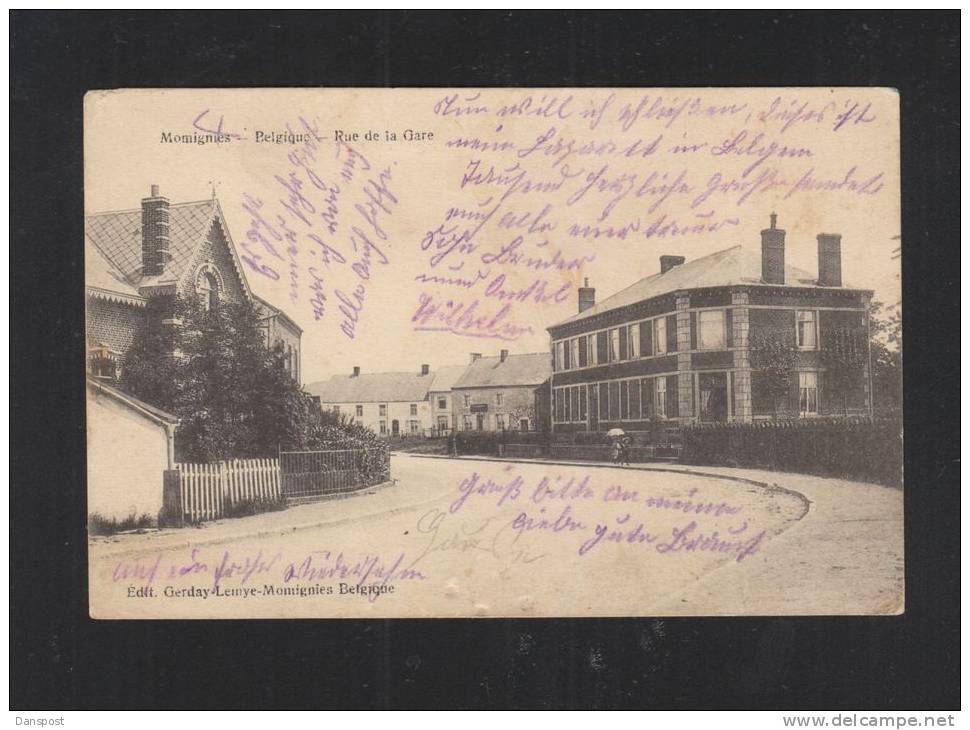 Momignies — Belgique — Rue de la Gare
Nun will ich schließen, dieses ist
mein Lazarett in Belgien
Tausend herzliche Grüße sendet
euch alle euer treuer
Sohn Bruder
und Onkel
Wilhelm
mir sehr gut
was ich von euch
alle auch hoffe.
Grüß bitte an meine
liebe gute Braut
auf ein frohes Wiedersehn
Édit. Gerday-Lemye-Momignies Belgique
Danspost
www.delcampe.net